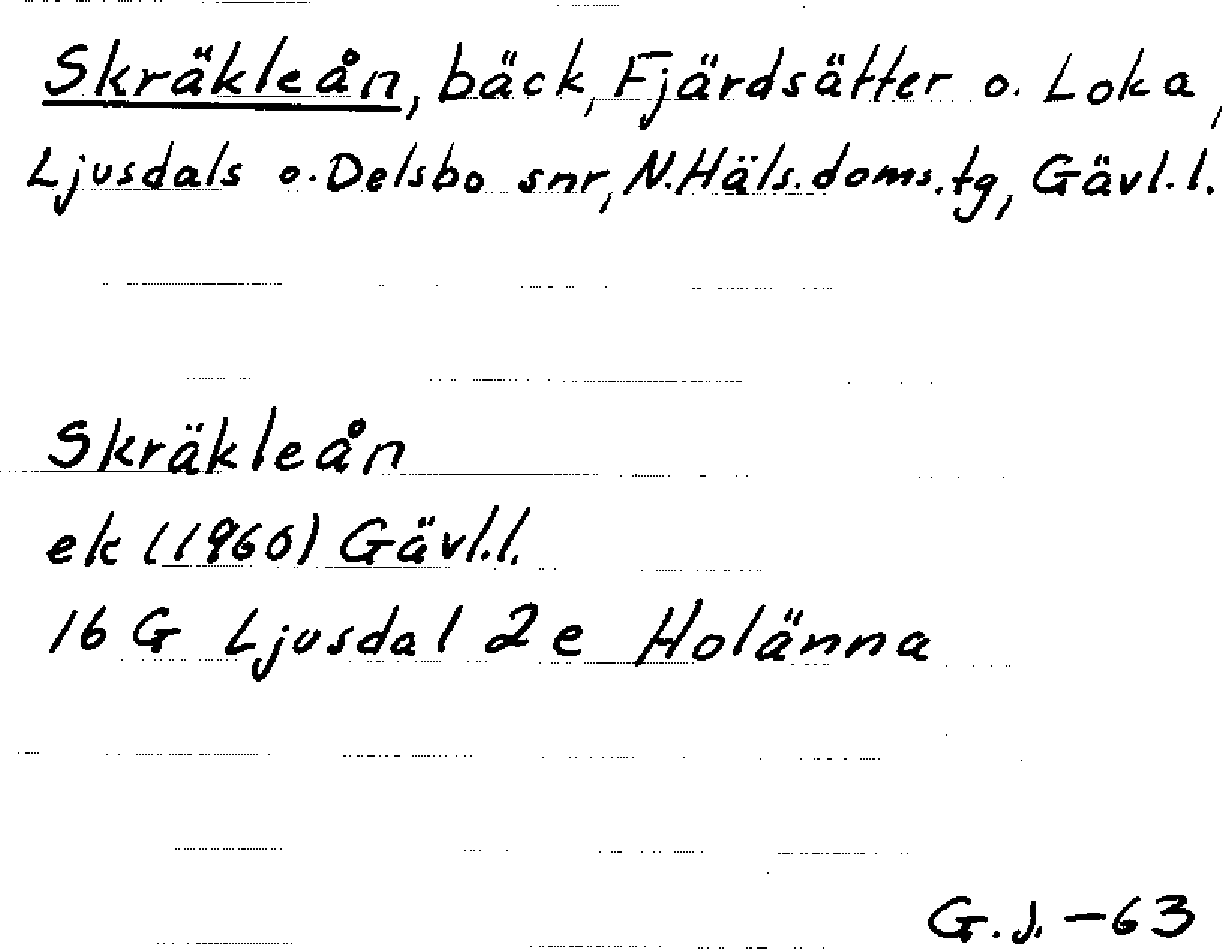 Skräkleån, bäck, Fjärdsätter o. Loka,
Ljusdals o. Delsbo snr, N. Häls. doms. tg, Gävl. l.
Skräkleån
ek (1960) Gävl. l.
16 G Ljusdal 2e Holänna
G. J. -63